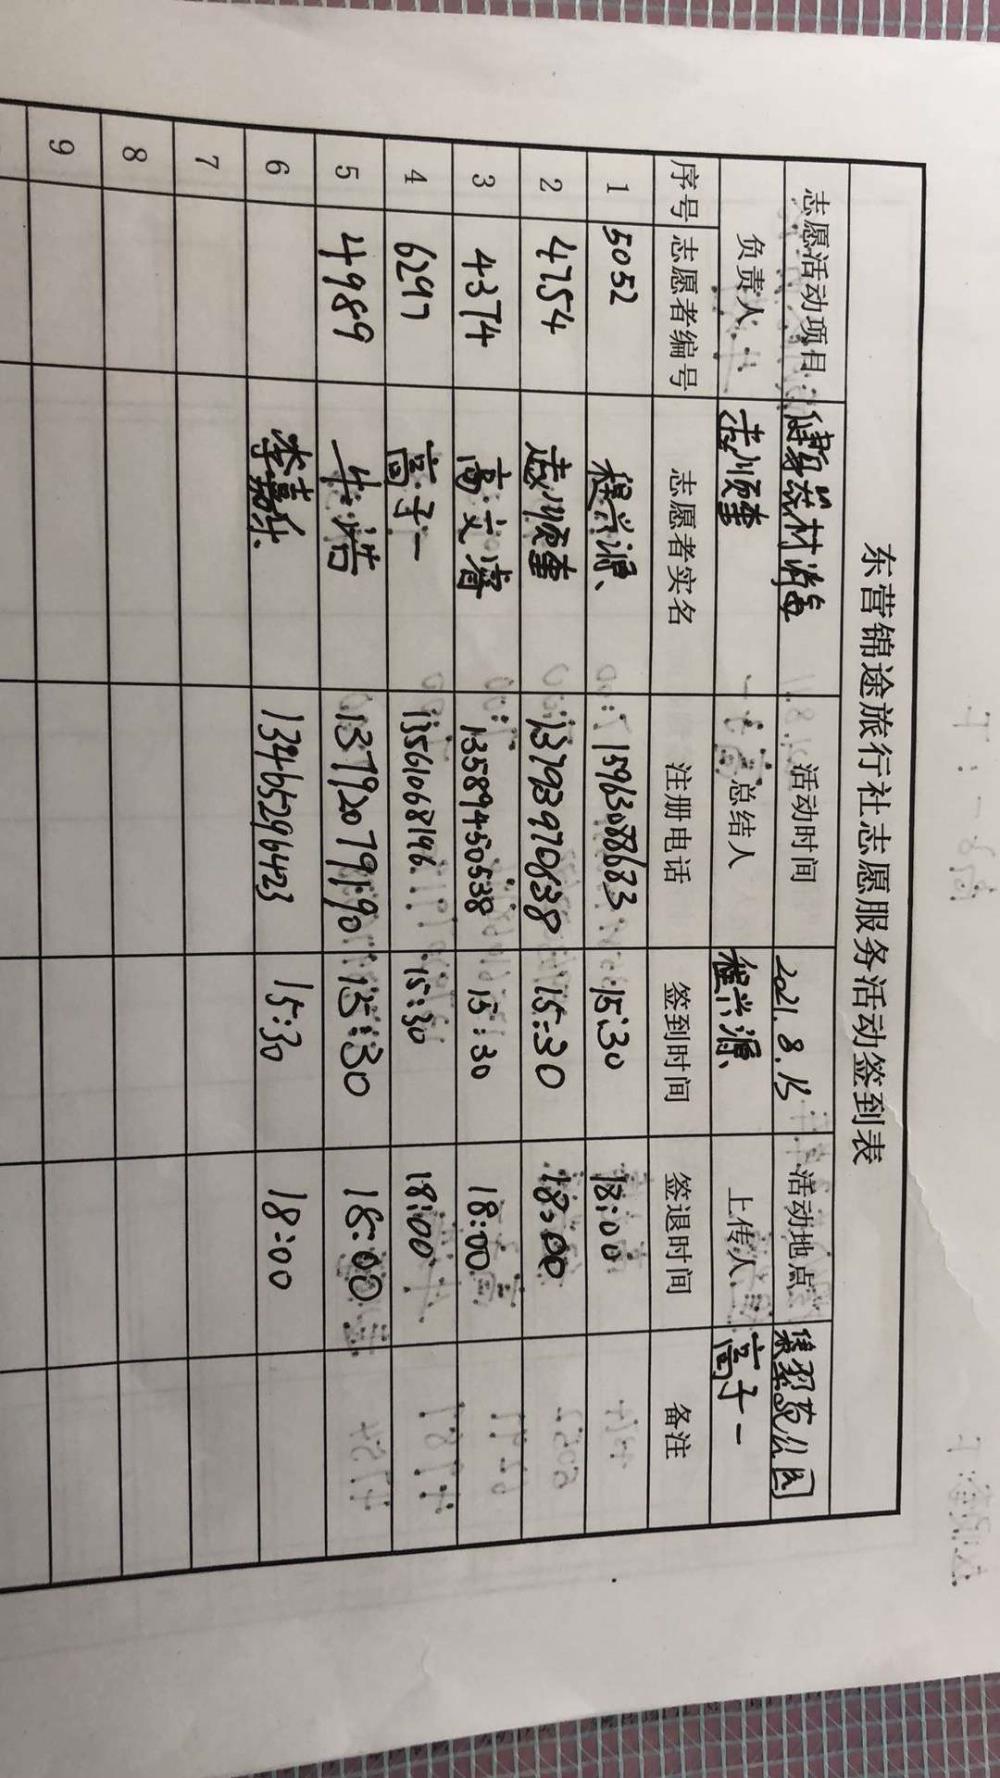 东营锦途旅行社志愿服务活动签到表
志愿活动项目: 健身器材消毒 活动时间 2021.8.15 活动地点 集翠苑公园
负责人: 赵顺奎 总结人 程兴源 上传人 高子一
序号 志愿者编号 志愿者实名 注册电话 签到时间 签退时间 备注
1 5052 程兴源 15963088683 15:30 18:00
2 4754 赵顺奎 13793970638 15:30 18:00
3 4374 高文睿 13589450538 15:30 18:00
4 6297 高子一 13561068196 15:30 18:00
5 4989 牛浩 13792079190 15:30 18:00
6 李嘉乐 13465296423 15:30 18:00
7
8
9